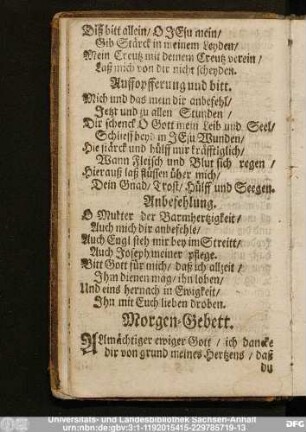 Diß bitt allein/ O JEsu mein/
Gib Stärck in meinem Leyden/
Mein Creutz mit deinem Creutz verein/
Laß mich von dir nicht scheyden.
Auffopfferung und bitt.
Mich und das mein dir anbefehl/
Jetzt und zu allen Stunden/
Dir schenck O Gott mein Leib und Seel/
Schließ beyd in JEsu Wunden/
Die stärck und hülff nur kräfftiglich/
Wann Fleisch und Blut sich regen/
Hierauß laß flüssen über mich/
Dein Gnad/ Trost/ Hülff und Seegen.
Anbefehlung.
O Mutter der Barmhertzigkeit/
Auch mich dir anbefehle/
Auch Engl steh mir bey im Streitt/
Auch Joseph meiner pflege.
Bitt Gott für mich/ daß ich allzeit/
Ihn dienen mag/ ihn loben/
Und eins hernach in Ewigkeit/
Ihn mit Euch lieben droben.
Morgen-Gebett.
Allmächtiger ewiger Gott/ ich dancke
dir von grund meines Hertzens/ daß
du
Universitäts- und Landesbibliothek Sachsen-Anhalt
urn:nbn:de:gbv:3:1-1192015415-229785719-13
DFG